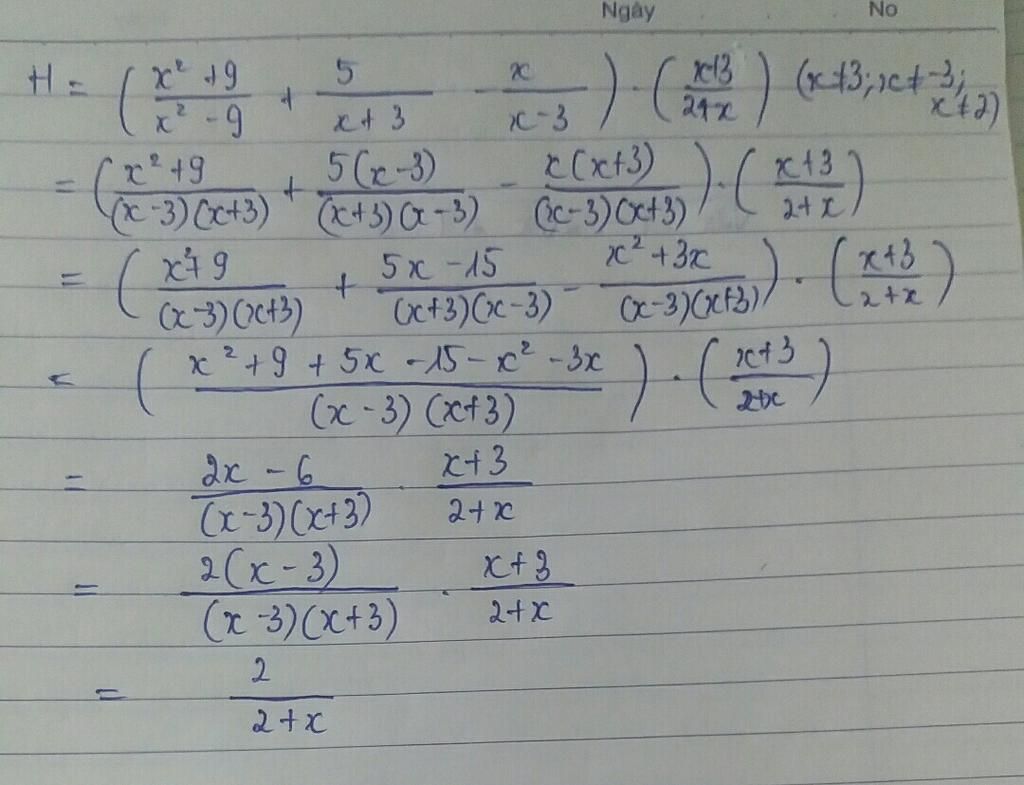 Ngày No
H = ( (x² + 9)/(x² - 9) + 5/(x + 3) - x/(x - 3) ) · ( (x+3)/(2+x) ) (x≠3; x≠-3; x≠2)
= ( (x² + 9)/((x-3)(x+3)) + (5(x-3))/((x+3)(x-3)) - (x(x+3))/((x-3)(x+3)) ) · ( (x+3)/(2+x) )
= ( (x² + 9)/((x-3)(x+3)) + (5x - 15)/((x+3)(x-3)) - (x² + 3x)/((x-3)(x+3)) ) · ( (x+3)/(2+x) )
= ( (x² + 9 + 5x - 15 - x² - 3x)/((x-3)(x+3)) ) · ( (x+3)/(2+x) )
= (2x - 6)/((x-3)(x+3)) · (x+3)/(2+x)
= (2(x-3))/((x-3)(x+3)) · (x+3)/(2+x)
= 2/(2+x)